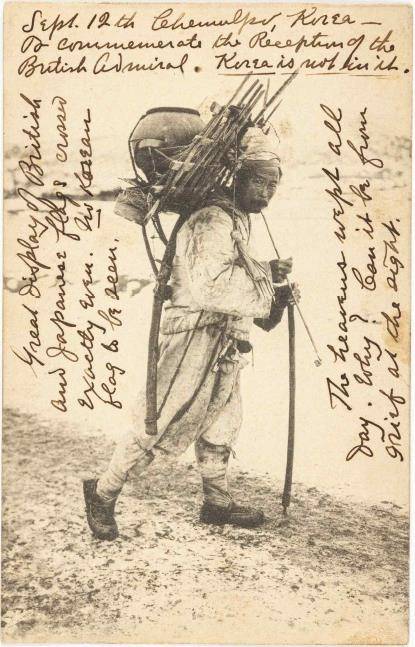 Sept. 12th Chemulpo, Korea —
To commemorate the Reception of the
British Admiral. Korea is not in it.
Great display of British
and Japanese flags crossed
exactly even. No Korean
flag to be seen.
The heavens wept all
day. Why? Can it be from
grief at the sight.